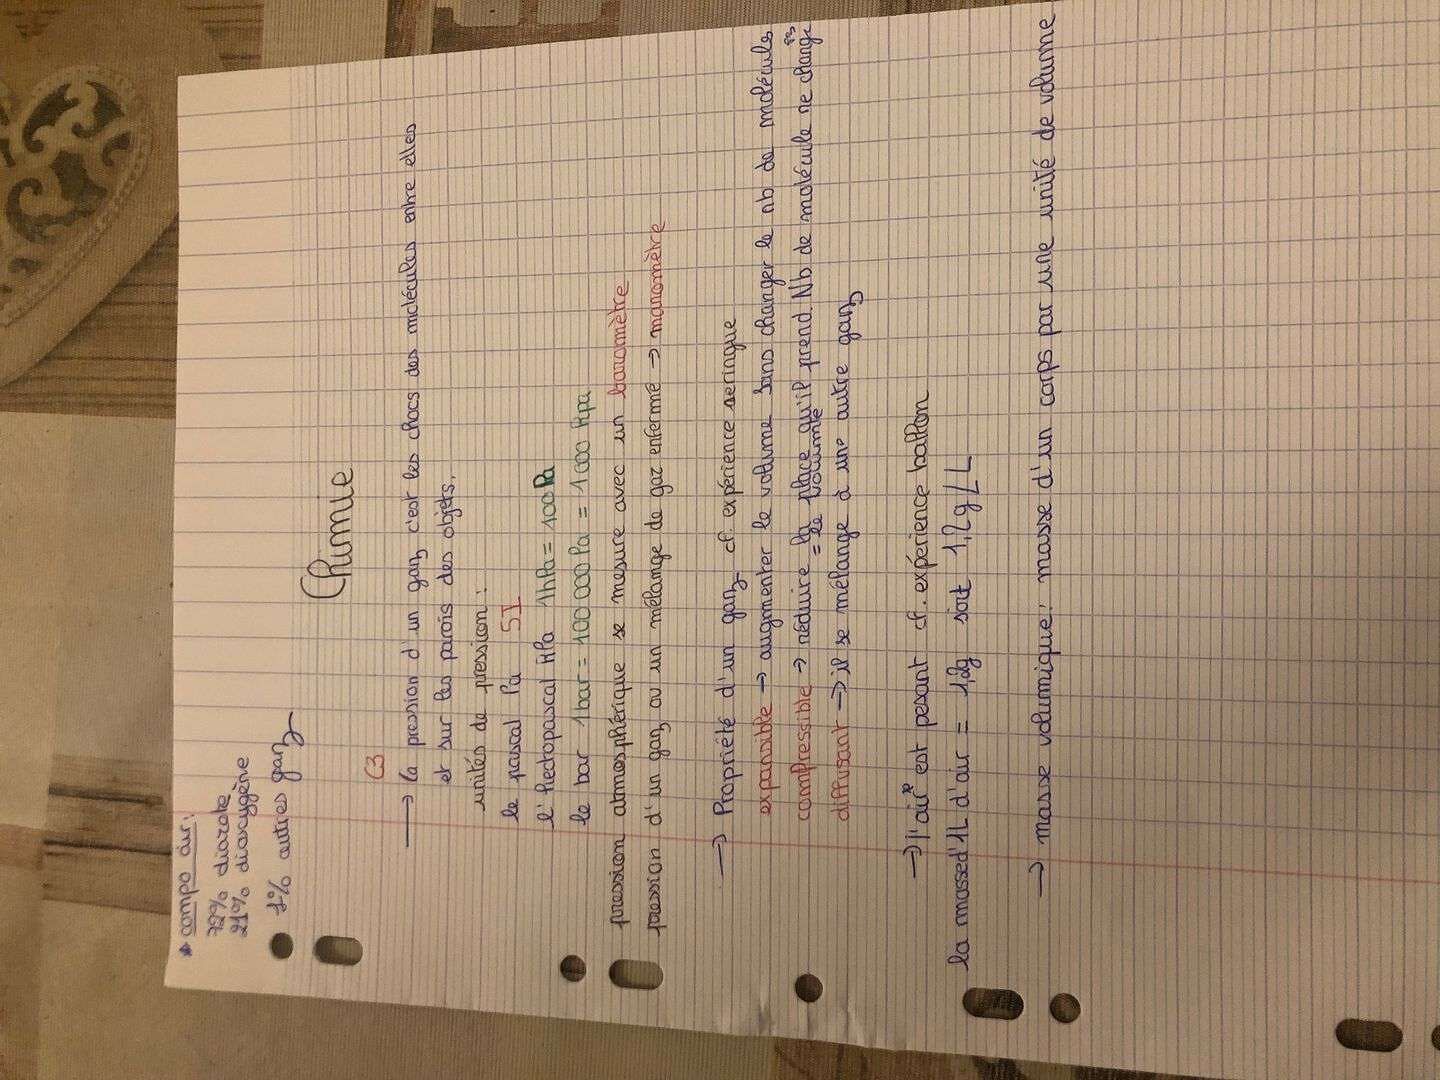 * compo air:
72% diazote
21% dioxygène
1% autres gaz
Chimie
C3
→ la pression d'un gaz, c'est les chocs des molécules entre elles
et sur les parois des objets.
unités de pression :
le pascal Pa SI
l'hectopascal HPa 1hPa = 100 Pa
le bar 1 bar = 100 000 Pa = 1 000 hpa
pression atmosphérique se mesure avec un baromètre
pression d'un gaz, ou un mélange de gaz enfermé → manomètre
→ Propriété d'un gaz cf. expérience seringue
expansible → augmenter le volume sans changer le nb de molécule
compressible → réduire la place qu'il prend. Nb de molécule ne change
pas
= le volume
diffusant → il se mélange à un autre gaz
→ l'air* est pesant cf. expérience ballon
la masse d'1L d'air = 1,2g soit 1,2g/L
→ masse volumique : masse d'un corps par une unité de volume